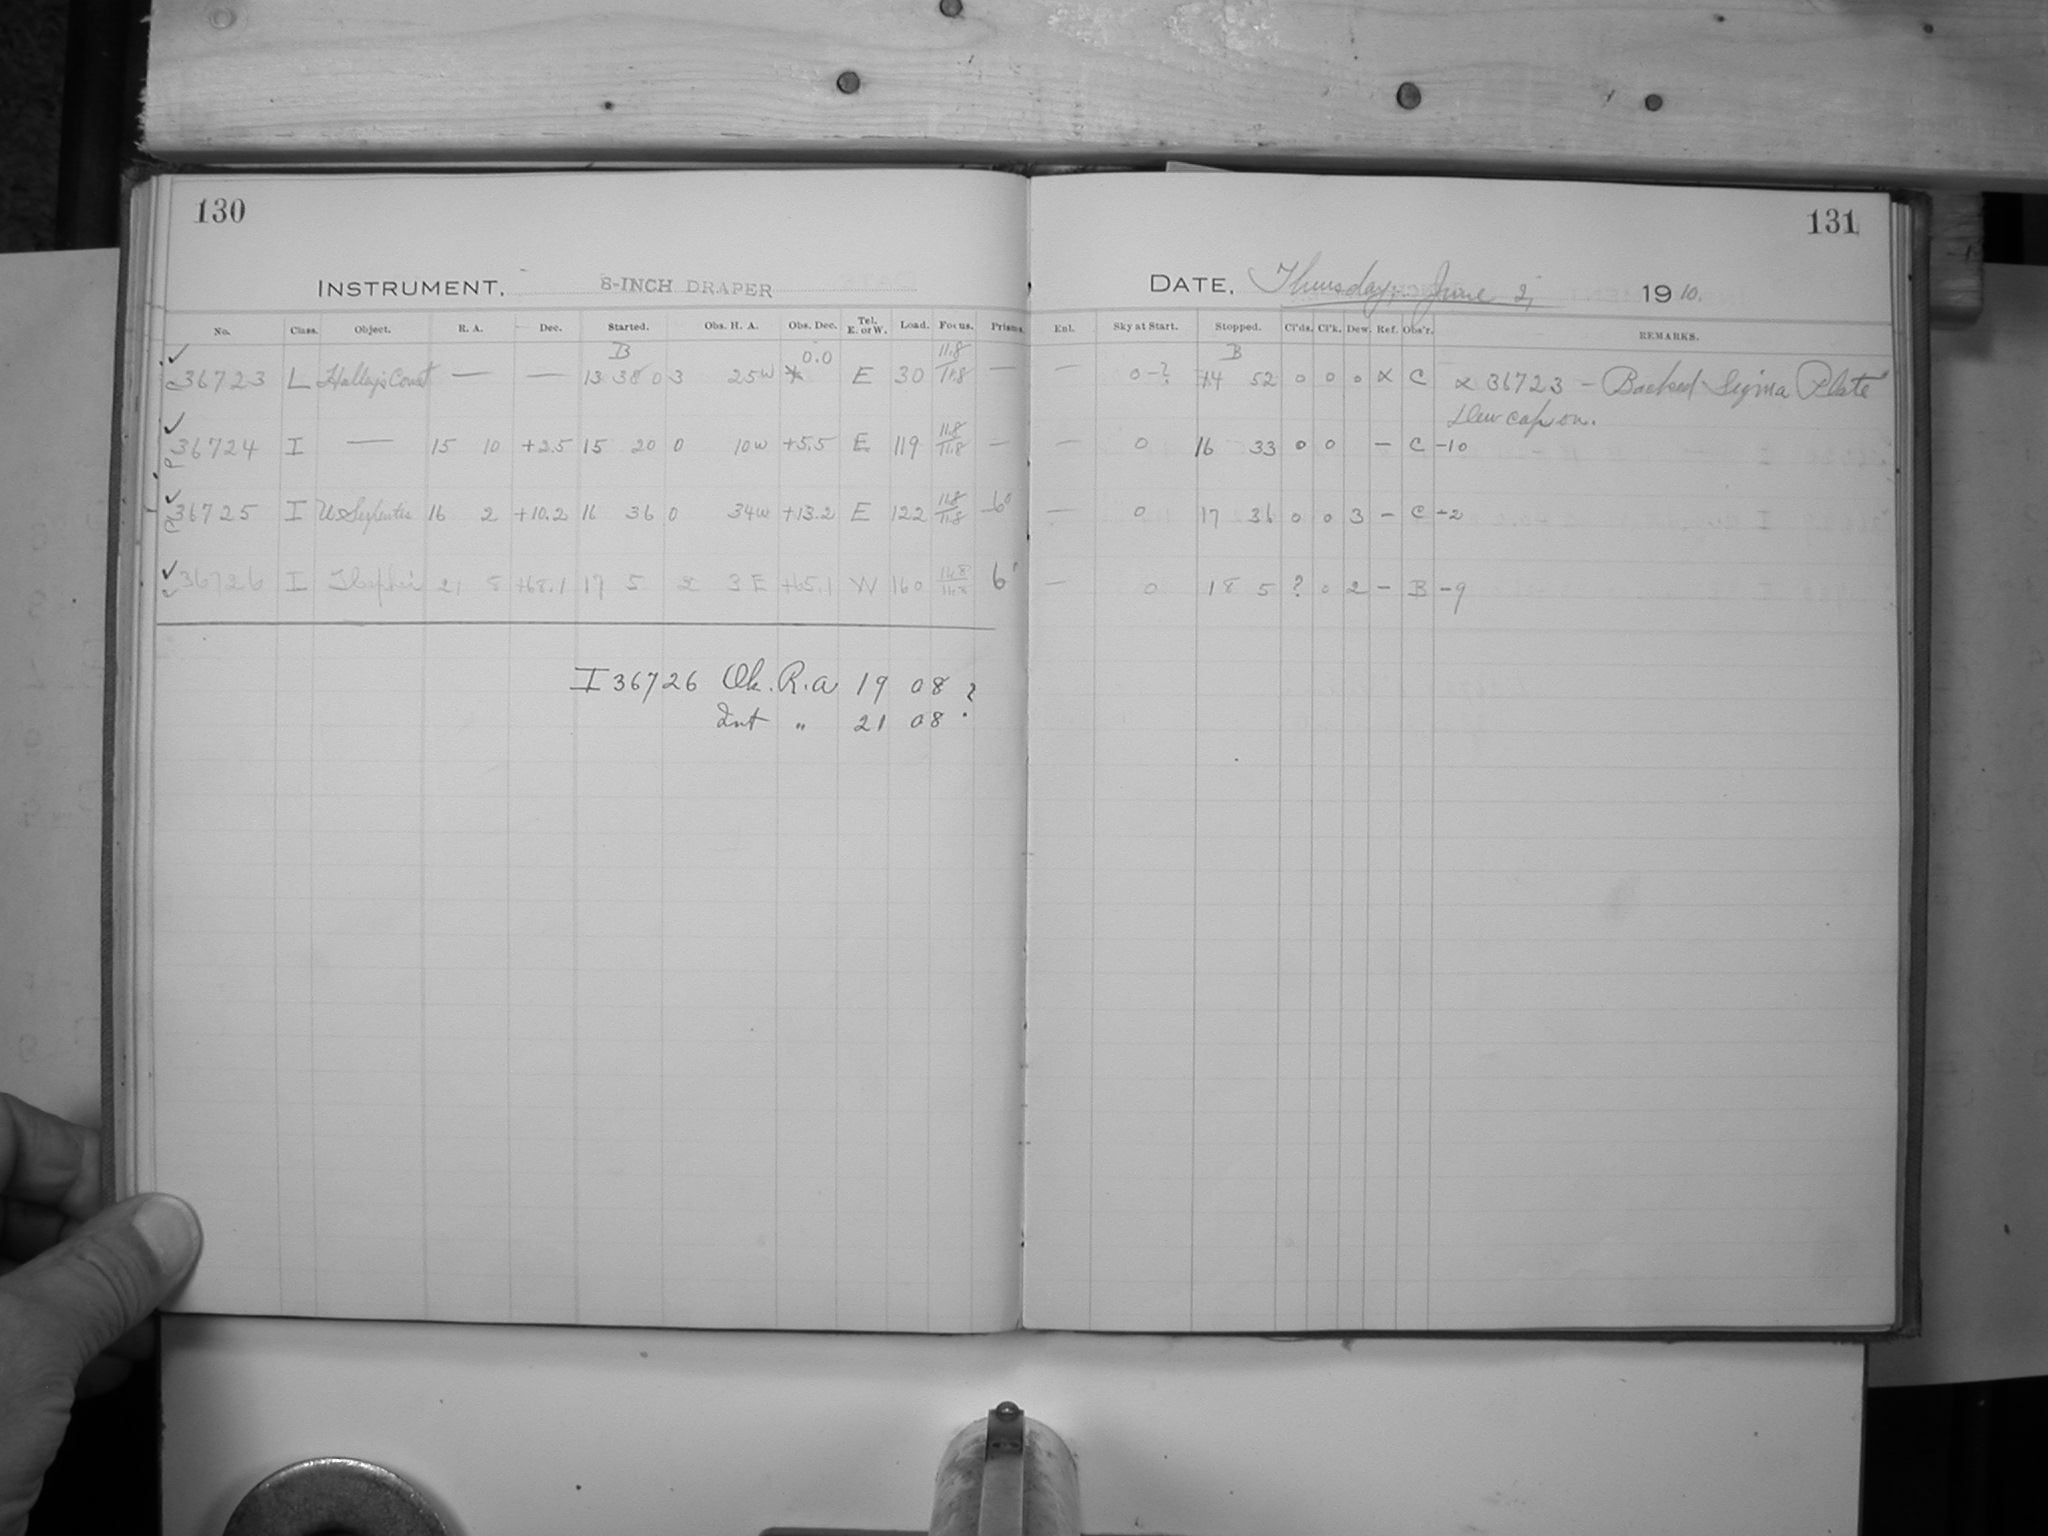 130
INSTRUMENT, 8-INCH DRAPER
No. Class. Object. R. A. Dec. Started. Obs. H. A. Obs. Dec. Tel. E. or W. Load. Focus. Prisms.
B 0.0 11.8
36723 L Halley's Comet — — 13 38 0 3 25W * E 30 11.8 —
36724 I — 15 10 +2.5 15 20 0 10W +5.5 E 119 11.8 11.8 —
36725 I U Serpentis 16 2 +10.2 16 36 0 34W +13.2 E 122 11.8 11.8 6°
36726 I 21 8 +68.1 17 5 2 3 E +65.1 W 160 11.8 11.8 6°
I 36726 Ok. R.a 19 08 ?
Int " 21 08
131
DATE, Thursday, June 2, 1910.
Enl. Sky at Start. Stopped. Cl'ds. Cl'k. Dew. Ref. Obs'r. REMARKS.
B
— 0-? 14 52 0 0 0 α C α 36723 — Backed Sigma Plate
Dew cap on.
— 0 16 33 0 0 — C -10
— 0 17 36 0 0 3 — C -2
— 0 18 5 ? 0 2 — B -9